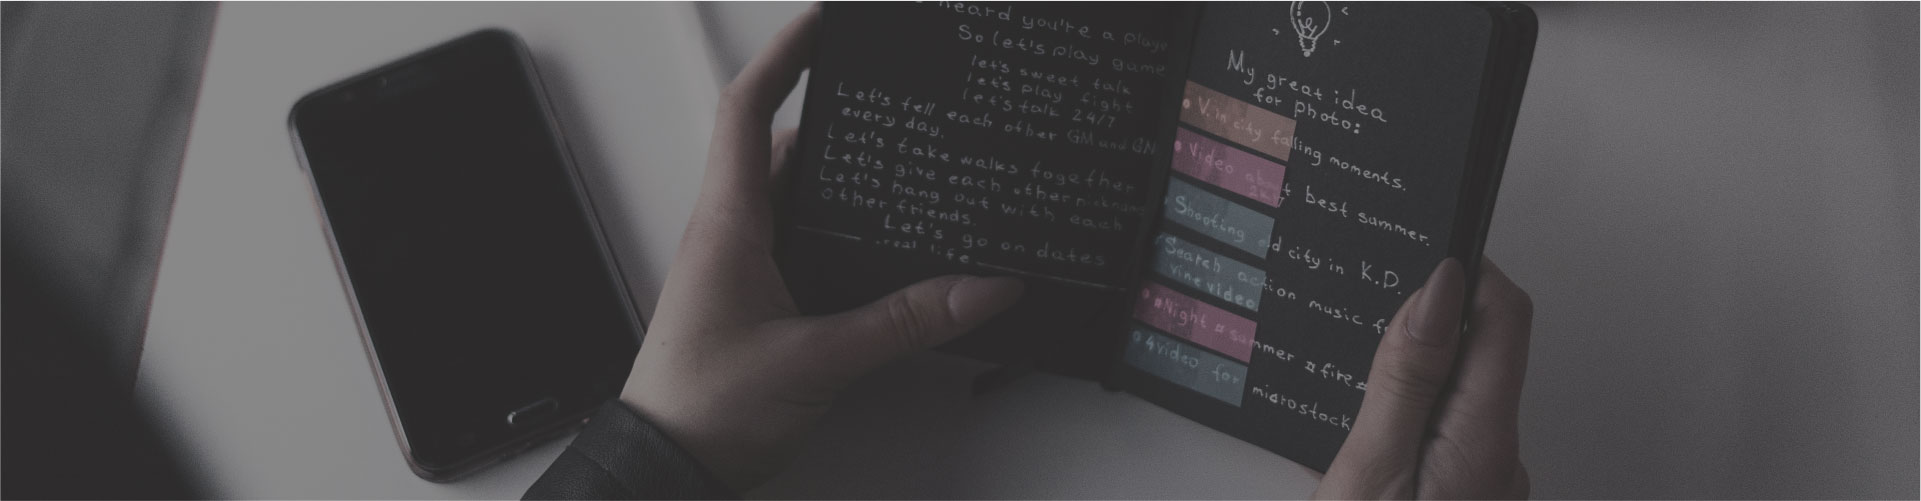 heard you're a playe
So let's play game
let's sweet talk
let's play fight
let's talk 24/7
Let's tell each other GM und GN
every day.
Let's take walks together
Let's give each other nickname
Let's hang out with each
other friends.
Let's go on dates
real life
My great idea
for photo:
V. in city falling moments.
Video about best summer.
Shooting old city in K.D.
Search action music f
vine video
#Night #summer #fire#
4video for microstock